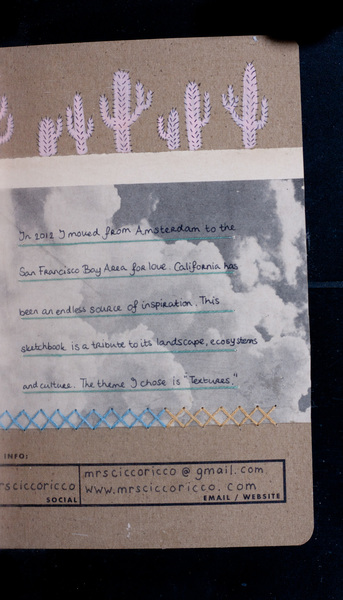 In 2012 I moved from Amsterdam to the
San Francisco Bay Area for love. California has
been an endless source of inspiration. This
sketchbook is a tribute to its landscape, ecosystems
and culture. The theme I chose is "Textures."
INFO:
rsciccoricco
SOCIAL
mrsciccoricco @ gmail. com
www.mrsciccoricco. com
EMAIL / WEBSITE